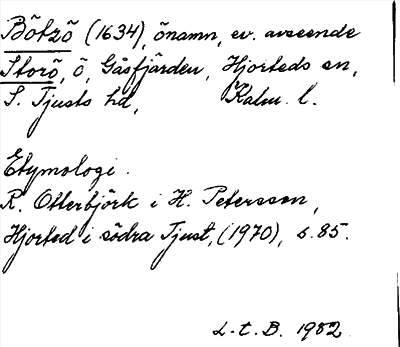 Bötzö (1634), önamn, ev. avseende
Storö, ö, Gåsfjärden, Hjorteds sn,
S. Tjusts hd, Kalm. l.
Etymologi.
R. Otterbjörk i H. Petersson,
Hjorted i södra Tjust, (1970), s. 85.
L.t.B. 1982